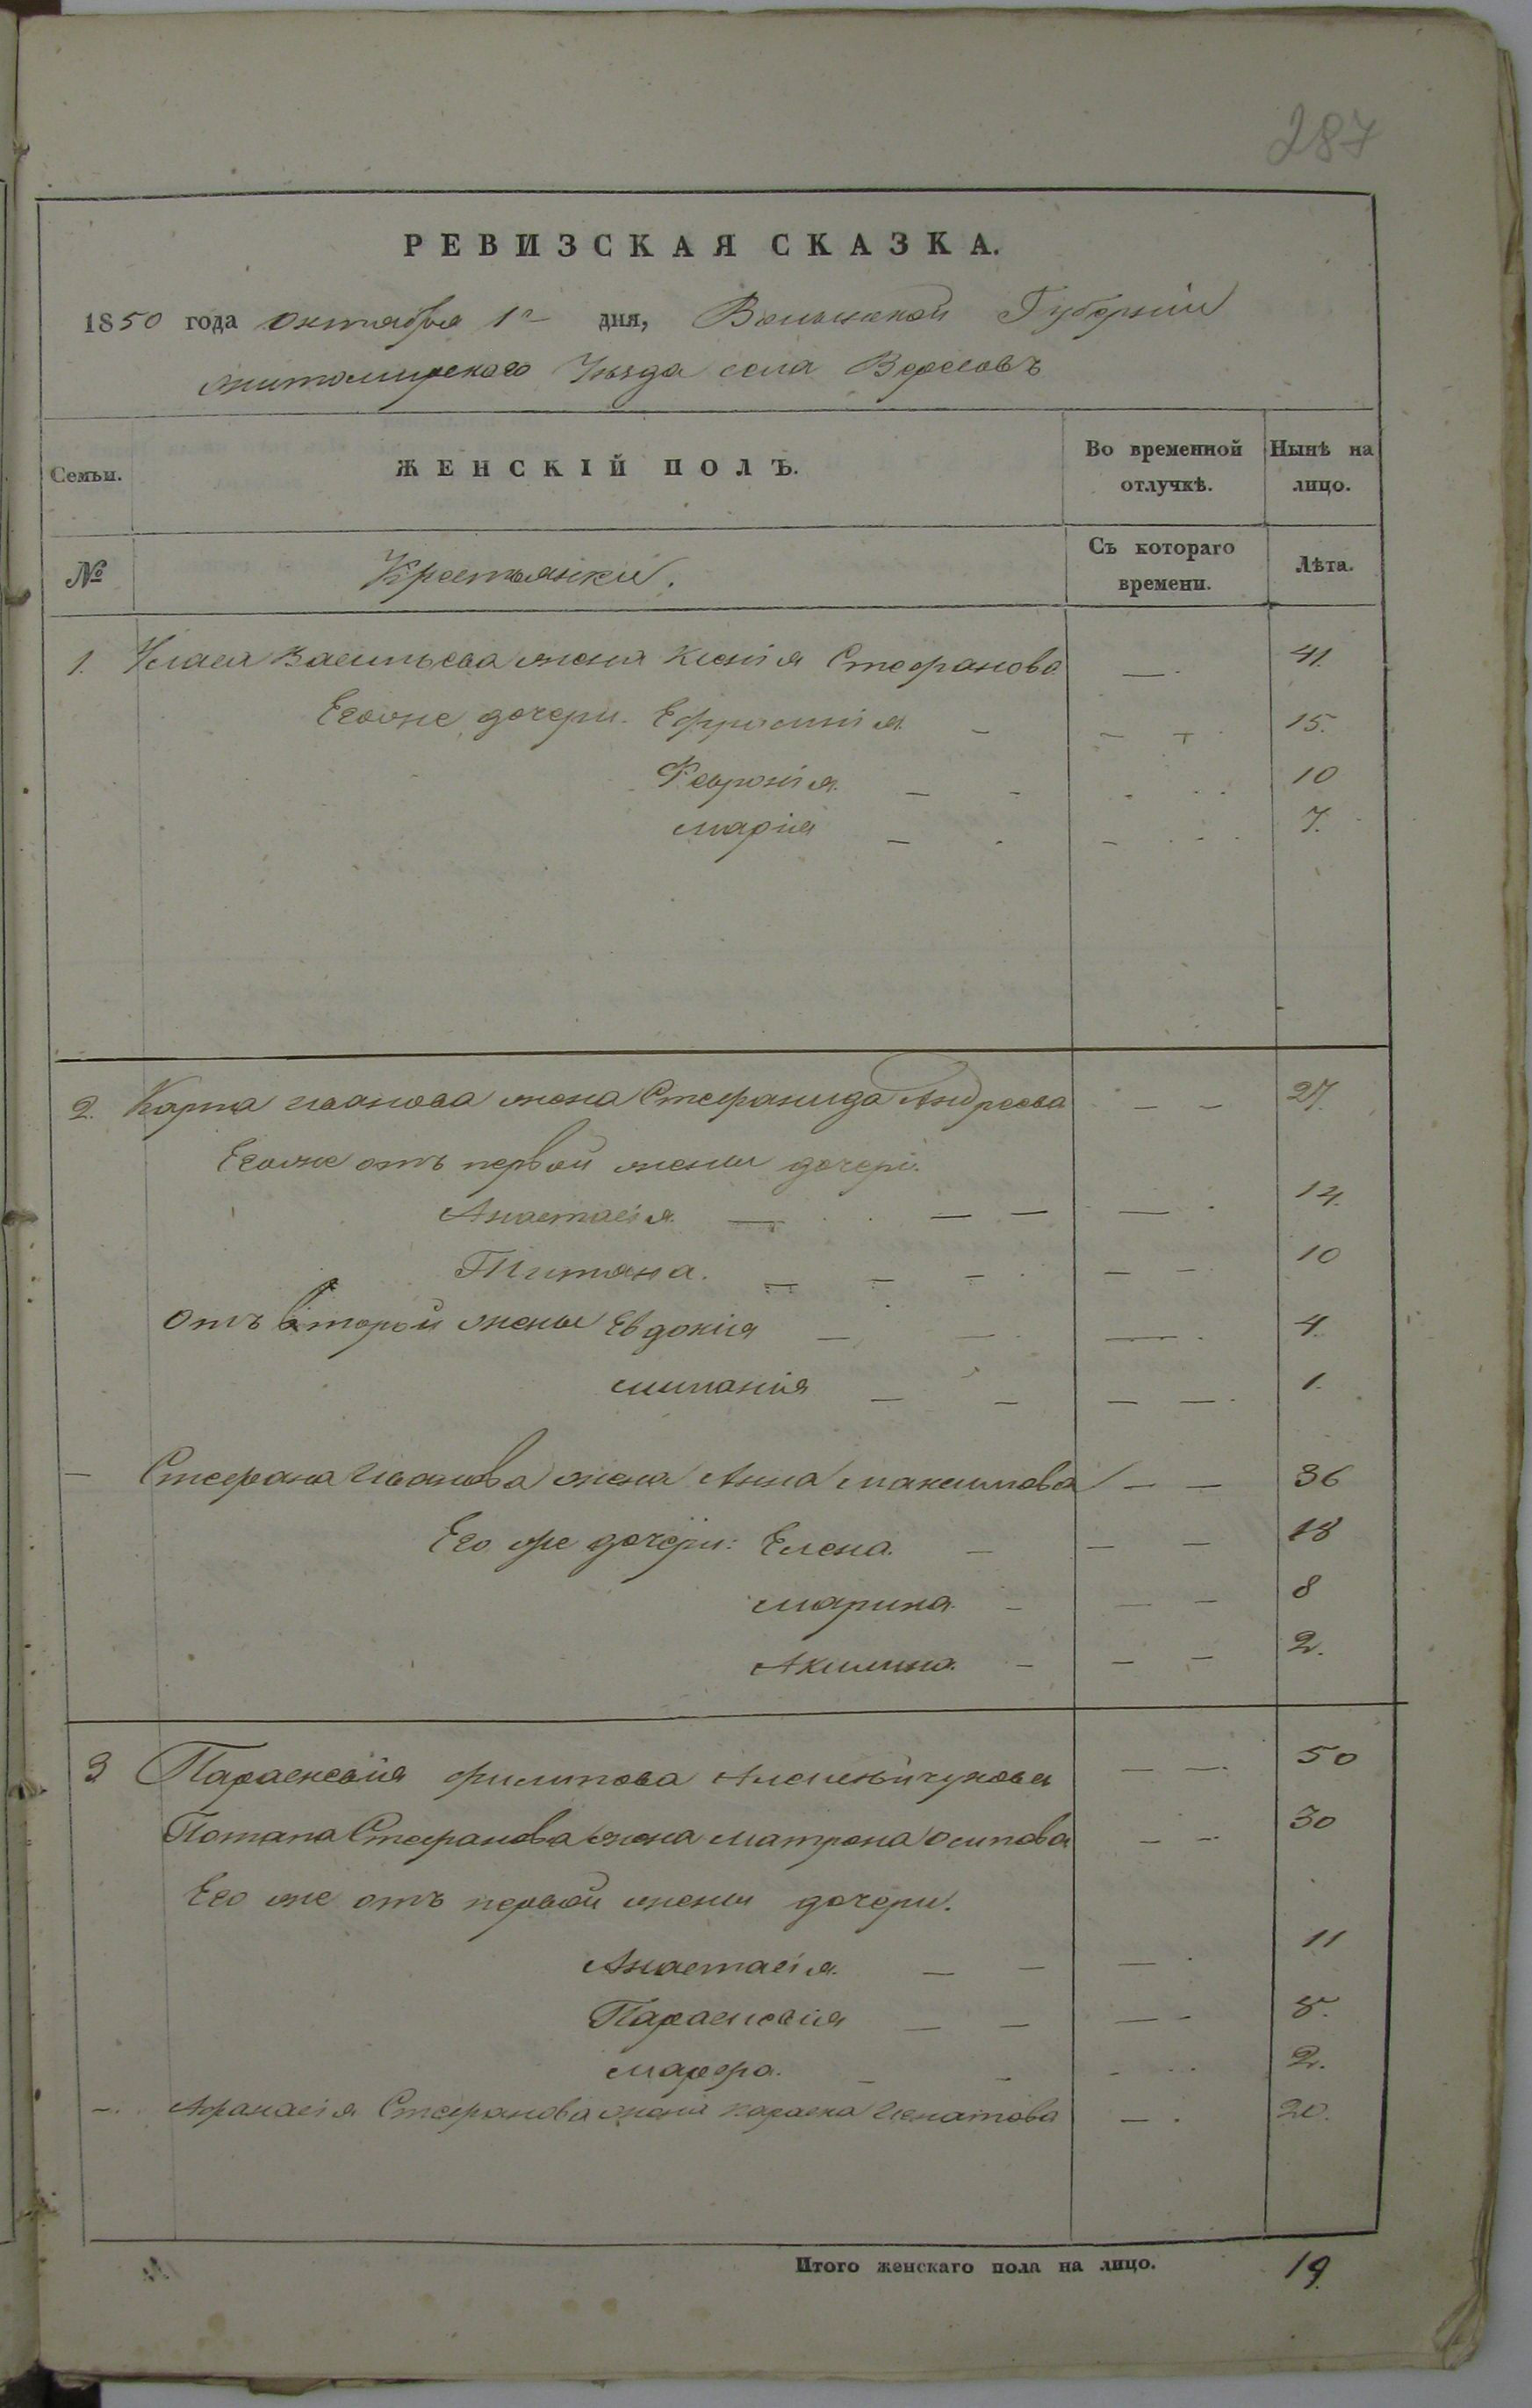 287
РЕВИЗСКАЯ СКАЗКА.
1850 года октября 1го дня, Волынской Губерніи
житомирского Уѣзда села Вересовъ
Семьи. ЖЕНСКІЙ ПОЛЪ. Во временной отлучкѣ. Нынѣ на лицо.
№ Крестьянки. Съ котораго времени. Лѣта.
1. Власа Васильева жена Ксенія Стефанова — 41.
Егоже дочери. Ефросинія — 15.
Февронія — 10
марія — 7.
2. Карпа иванова жена Стефанида Андреева — 27.
Егоже отъ первой жены дочери.
Анастасія. — 14.
Титяна. — 10
отъ второй жены Евдокія — 4.
миланія — 1.
— Стефана Иванова жена Анна максимова — 36
Его же дочери: Елена — 18
марина — 8
Акилина. — 2.
3 Параскевія филипова — 50
Потапа Стефанова жена матрона осипова — 30
Его же отъ первой жены дочери.
Анастасія. — 11
Параскевія — 8.
марфа. — 2.
—. Афанасія Стефанова жена Игнатова — 20.
Итого женскаго пола на лицо. 19.